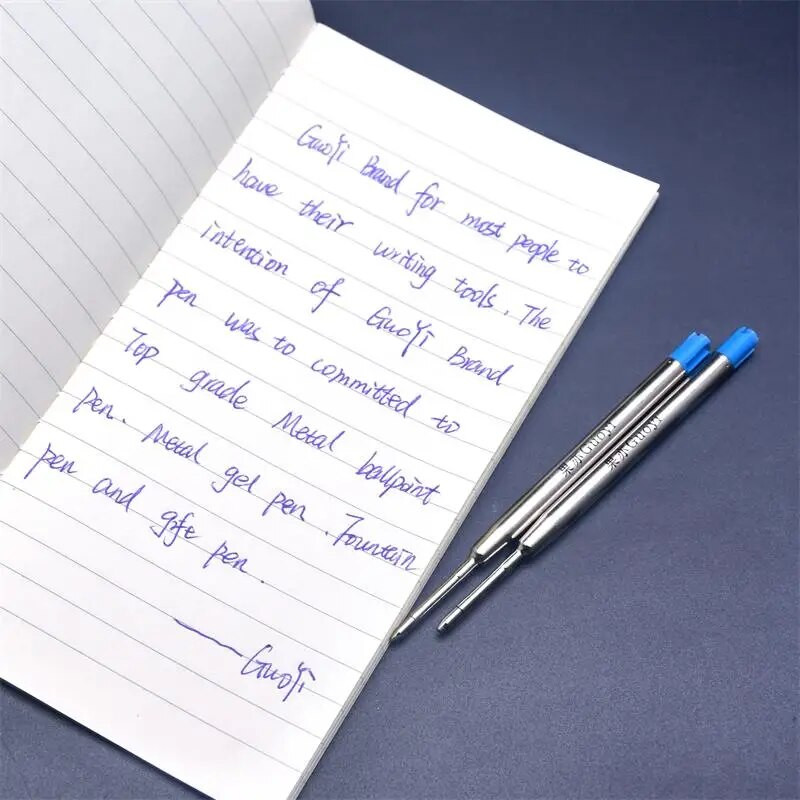 GuoYi Brand for most people to
have their writing tools. The
intention of GuoYi Brand
pen was to committed to
Top grade Metal ballpoint
pen. Metal gel pen. Fountain
pen and gife pen.
— GuoYi
GUOYI
GUOYI